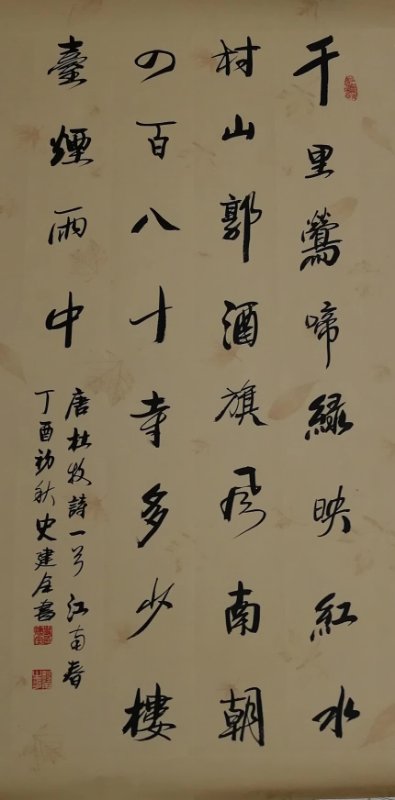 千里鶯啼緑映紅水
村山郭酒旗风南朝
四百八十寺多少樓
臺煙雨中
唐杜牧詩一首江南春
丁酉初秋史建全書